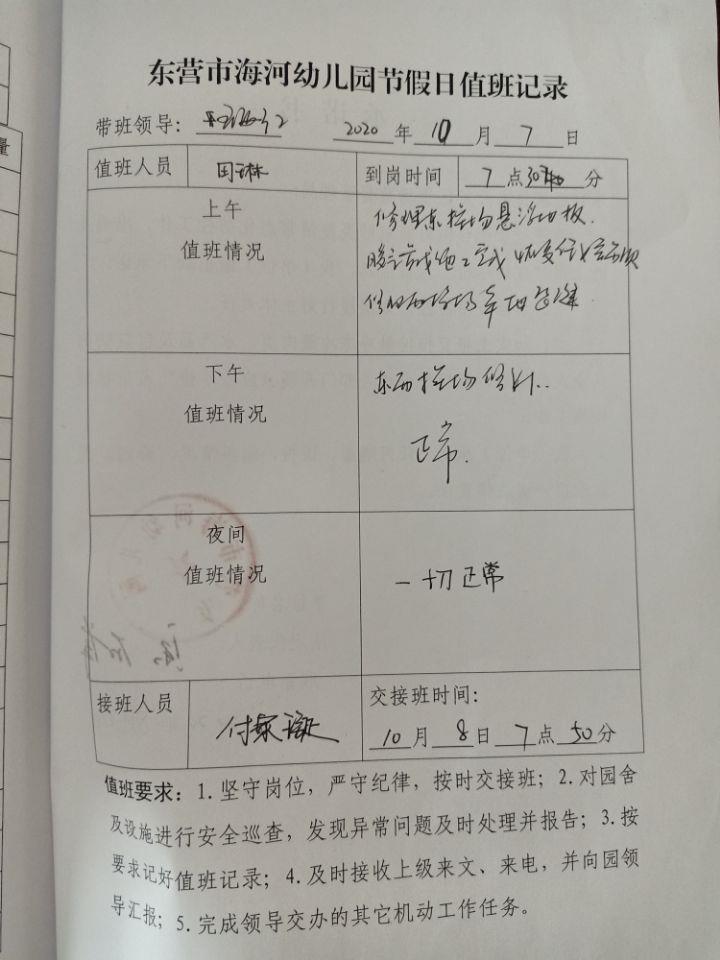 东营市海河幼儿园节假日值班记录
带班领导： 2020 年 10 月 7 日
值班人员 田琳 到岗时间 7 点 30 分
上午
值班情况
修理东操场悬浮地板.
下午
值班情况
东西操场修
正常.
夜间
值班情况
一切正常
接班人员 付
交接班时间：
10 月 8 日 7 点 50 分
值班要求：1. 坚守岗位，严守纪律，按时交接班；2. 对园舍
及设施进行安全巡查，发现异常问题及时处理并报告；3. 按
要求记好值班记录；4. 及时接收上级来文、来电，并向园领
导汇报；5. 完成领导交办的其它机动工作任务。
量